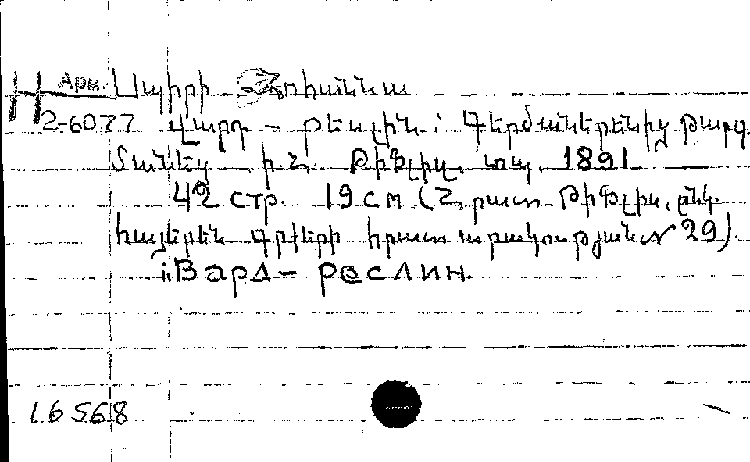 Арм. Սպիրի Յոհաննա
2-6077 Վարդ - րեսլին: Գերմաներենից թարգ.
Տանեց Ի. Հ. Թիֆլիս, տպ. 1891
42 стр. 19 см (Հրատ. Թիֆլիս. ընկ.
հայերեն գրքերի հրատարակության № 29)
i. Вард - реслин.
16568